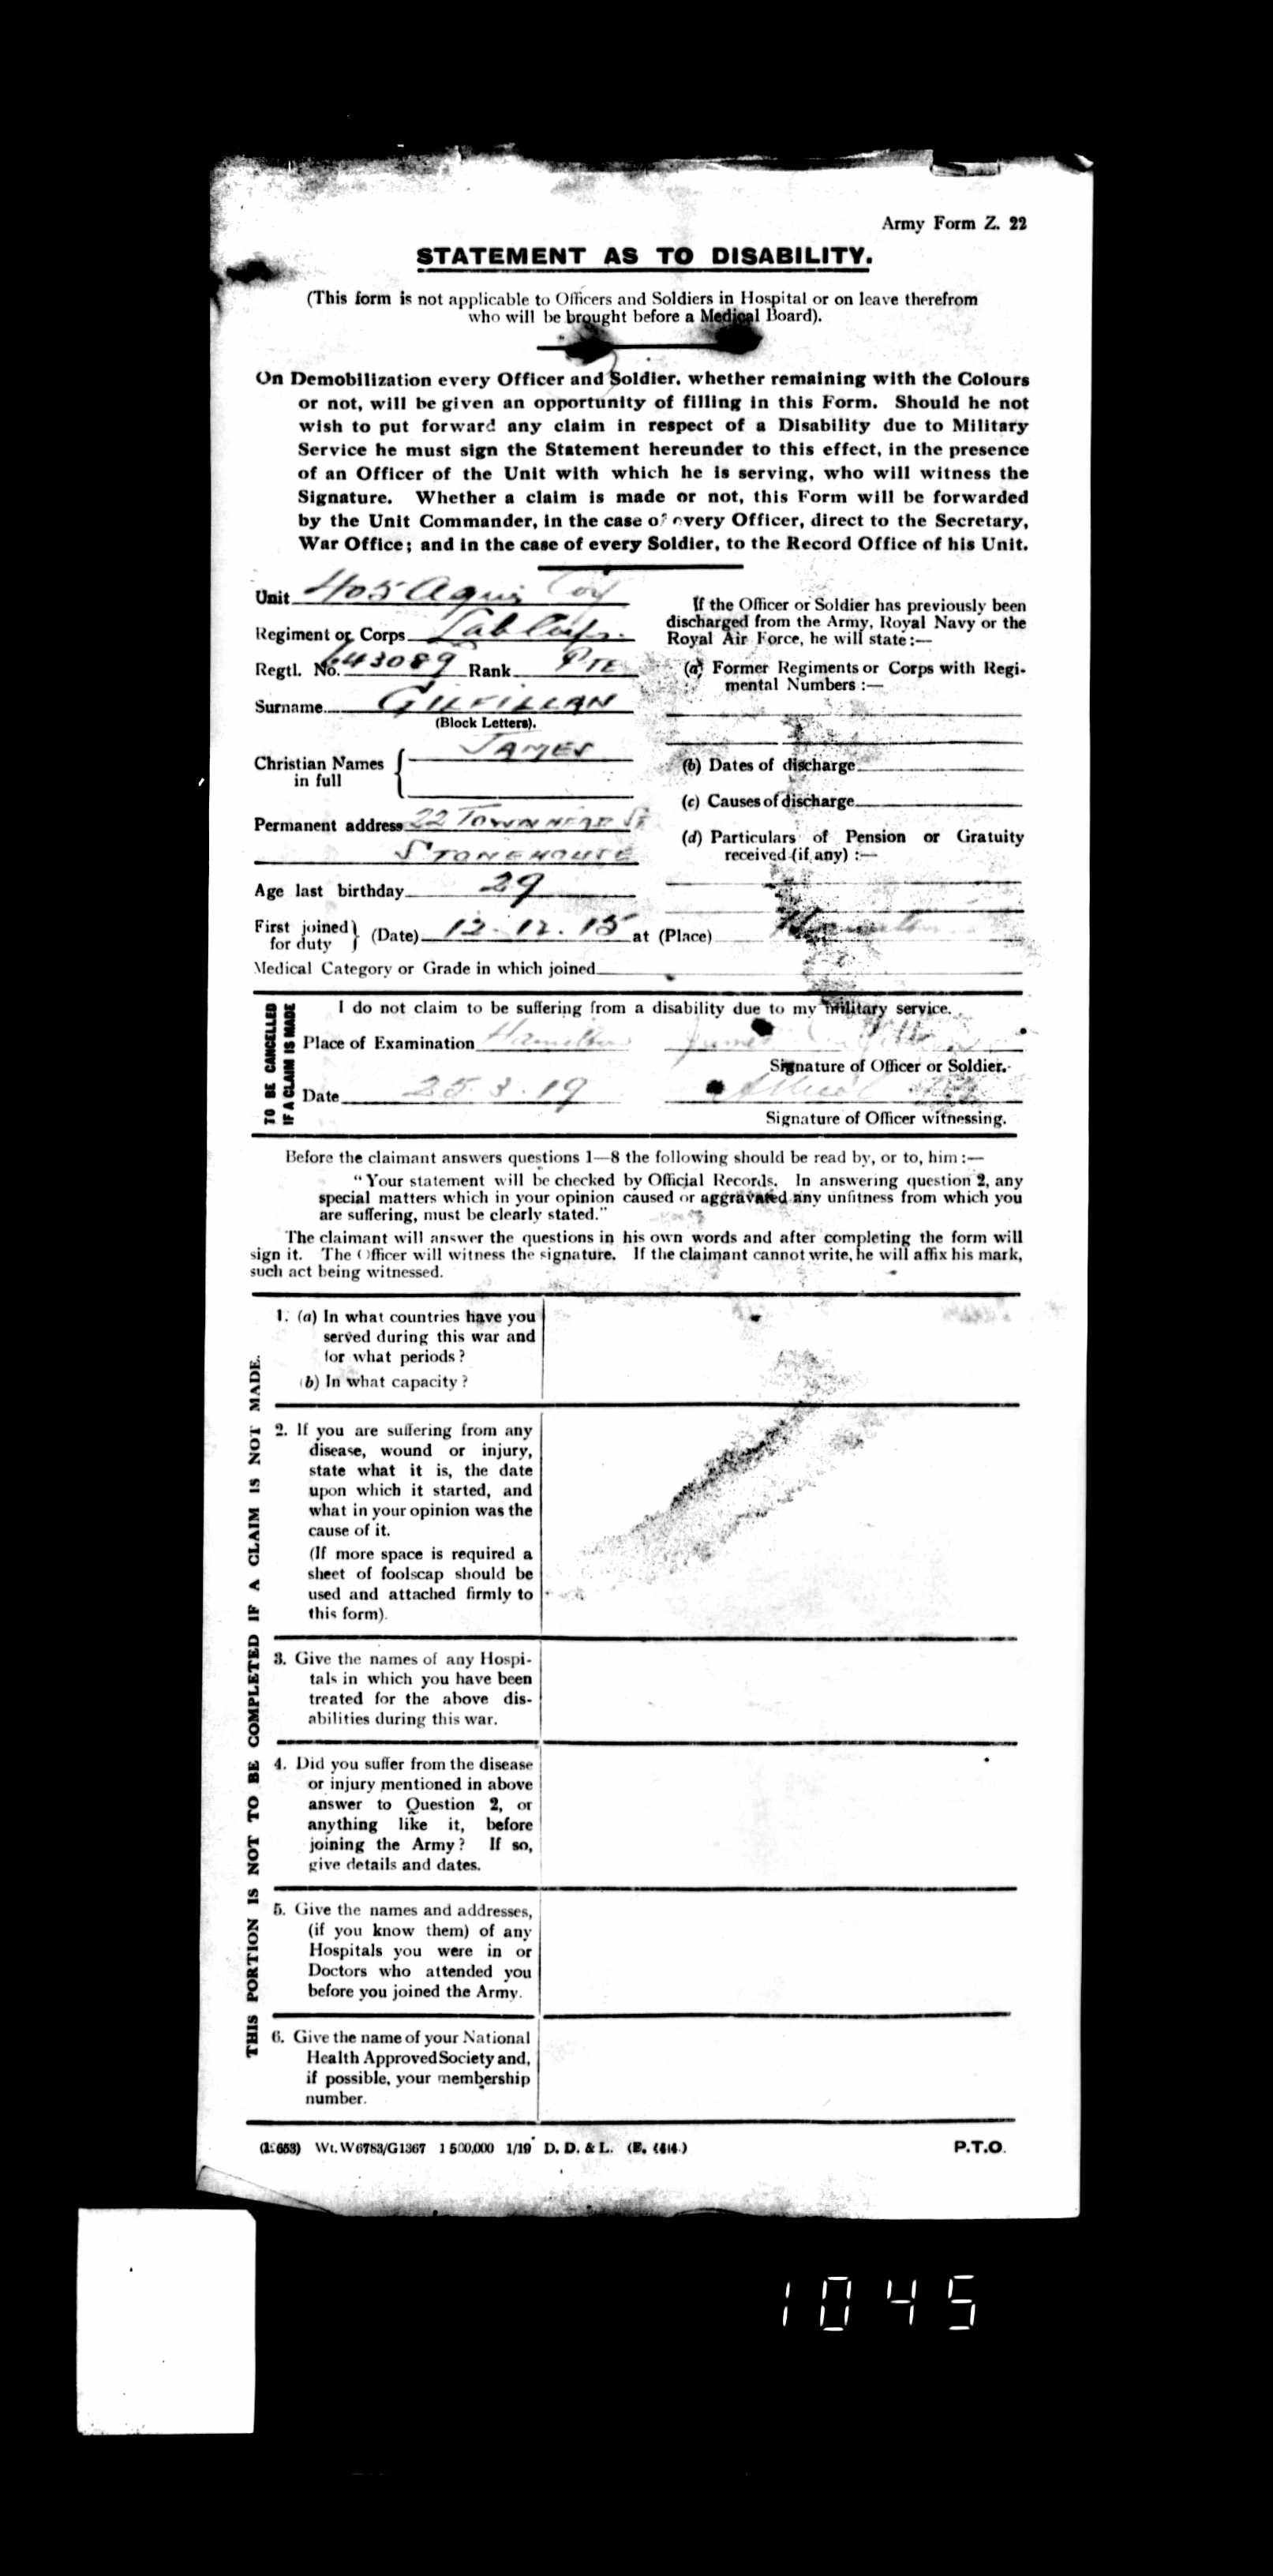 Army Form Z. 22
STATEMENT AS TO DISABILITY.
(This form is not applicable to Officers and Soldiers in Hospital or on leave therefrom
who will be brought before a Medical Board).
On Demobilization every Officer and Soldier, whether remaining with the Colours
or not, will be given an opportunity of filling in this Form. Should he not
wish to put forward any claim in respect of a Disability due to Military
Service he must sign the Statement hereunder to this effect, in the presence
of an Officer of the Unit with which he is serving, who will witness the
Signature. Whether a claim is made or not, this Form will be forwarded
by the Unit Commander, in the case of every Officer, direct to the Secretary,
War Office; and in the case of every Soldier, to the Record Office of his Unit.
Unit 405 Agric Coy
Regiment or Corps Lab Corps.
Regtl. No. 643089 Rank PTE
Surname GILFILLAN
(Block Letters).
Christian Names in full JAMES
Permanent address 22 TOWNHEAD ST
STONEHOUSE
Age last birthday 29
First joined for duty } (Date) 12.12.15 at (Place) Hamilton
Medical Category or Grade in which joined
If the Officer or Soldier has previously been
discharged from the Army, Royal Navy or the
Royal Air Force, he will state:—
(a) Former Regiments or Corps with Regi-
mental Numbers :—
(b) Dates of discharge
(c) Causes of discharge
(d) Particulars of Pension or Gratuity
received (if any) :—
TO BE CANCELLED
IF A CLAIM IS MADE
I do not claim to be suffering from a disability due to my military service.
Place of Examination Hamilton James Gilfillan
Signature of Officer or Soldier.
Date 25.3.19
Signature of Officer witnessing.
Before the claimant answers questions 1—8 the following should be read by, or to, him :—
"Your statement will be checked by Official Records. In answering question 2, any
special matters which in your opinion caused or aggravated any unfitness from which you
are suffering, must be clearly stated."
The claimant will answer the questions in his own words and after completing the form will
sign it. The Officer will witness the signature. If the claimant cannot write, he will affix his mark,
such act being witnessed.
THIS PORTION IS NOT TO BE COMPLETED IF A CLAIM IS NOT MADE.
1. (a) In what countries have you
served during this war and
for what periods?
(b) In what capacity?
2. If you are suffering from any
disease, wound or injury,
state what it is, the date
upon which it started, and
what in your opinion was the
cause of it.
(If more space is required a
sheet of foolscap should be
used and attached firmly to
this form).
3. Give the names of any Hospi-
tals in which you have been
treated for the above dis-
abilities during this war.
4. Did you suffer from the disease
or injury mentioned in above
answer to Question 2, or
anything like it, before
joining the Army? If so,
give details and dates.
5. Give the names and addresses,
(if you know them) of any
Hospitals you were in or
Doctors who attended you
before you joined the Army.
6. Give the name of your National
Health Approved Society and,
if possible, your membership
number.
Wt. W6783/G1367 1500,000 1/19 D. D. & L.
P.T.O.
1045